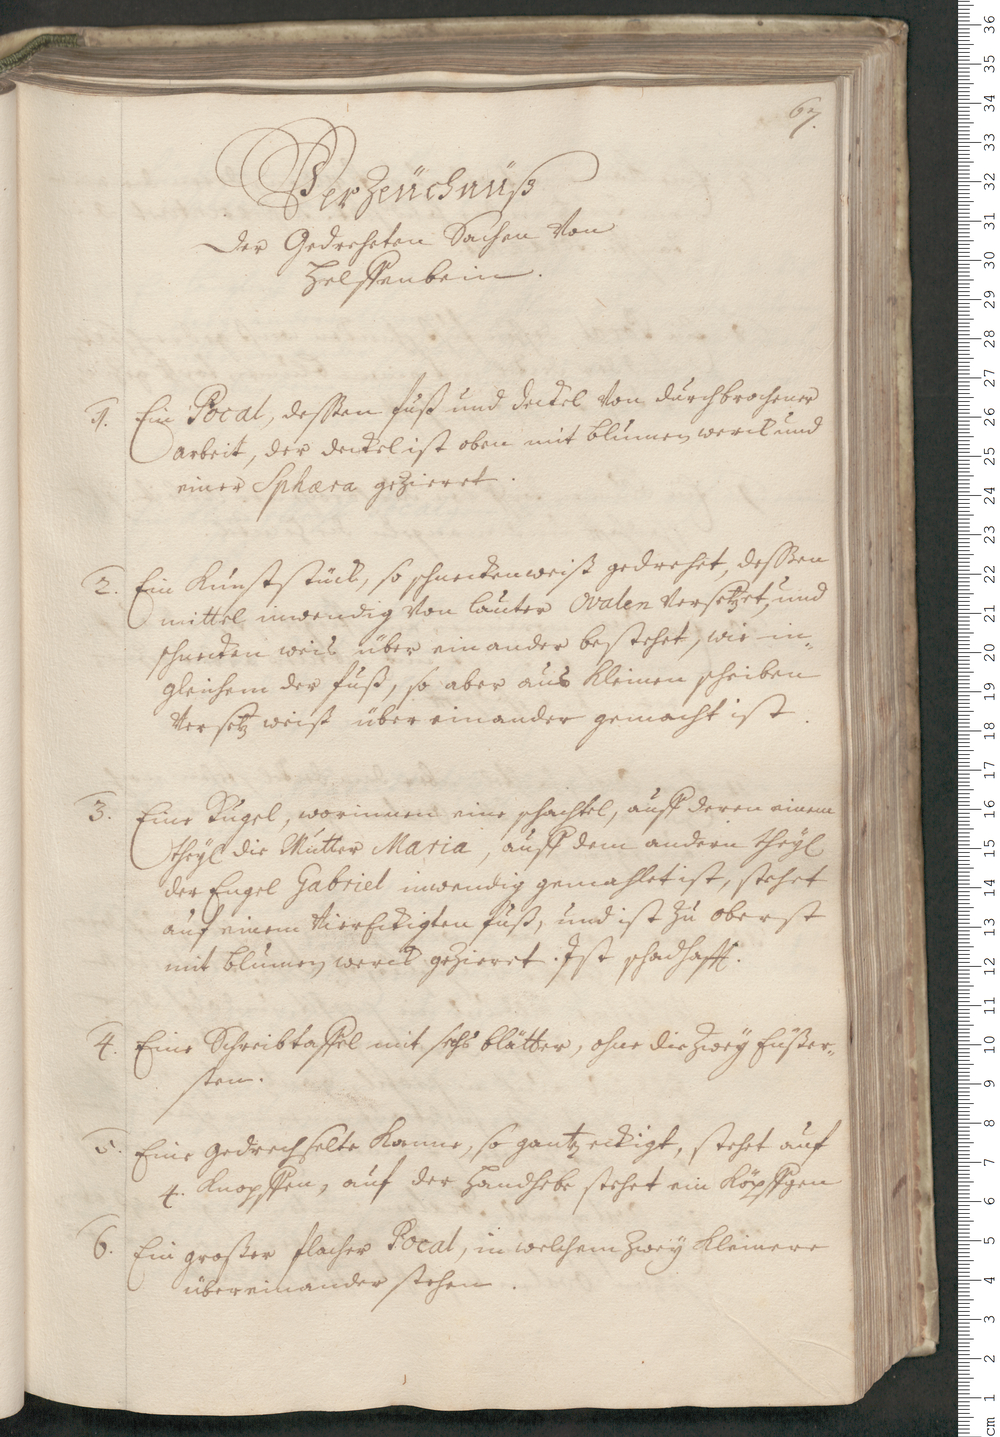 67.
Verzeüchnüß
Der Gedreheten Sachen Von
Helffenbein.
1. Ein Pocal, dessen fuß und deckel Von durchbrochener
arbeit, der deckel ist oben mit blumen werck und
einer Sphæra gezieret.
2. Ein Kunststück, so schneckenweiß gedrehet, dessen
mittel inwendig Von lauter Ovalen Versetzet, und
schnecken weis über einander bestehet, wie in-
gleichem der fuß, so aber aus kleinen scheiben
Versetz weiß über einander gemacht ist.
3. Eine Kugel, worinnen eine schachtel, auff deren einem
theÿl die Mutter Maria, auff dem andern theÿl
der Engel Gabriel inwendig gemahlet ist, stehet
auf einem Viereckigten fuß, und ist zu oberst
mit blumen werck gezieret. Ist schadhafft.
4. Eine Schreibtaffel mit sechs blätter, ohne die zweÿ eußer-
sten.
5. Eine gedrechselte Kanne, so gantz eckigt, stehet auf
4. Knopffen, auf der Handhebe stehet ein Köpffgen
6. Ein großer flacher Pocal, in welchem zweÿ kleinere
übereinander stehen.
cm 1 2 3 4 5 6 7 8 9 10 11 12 13 14 15 16 17 18 19 20 21 22 23 24 25 26 27 28 29 30 31 32 33 34 35 36